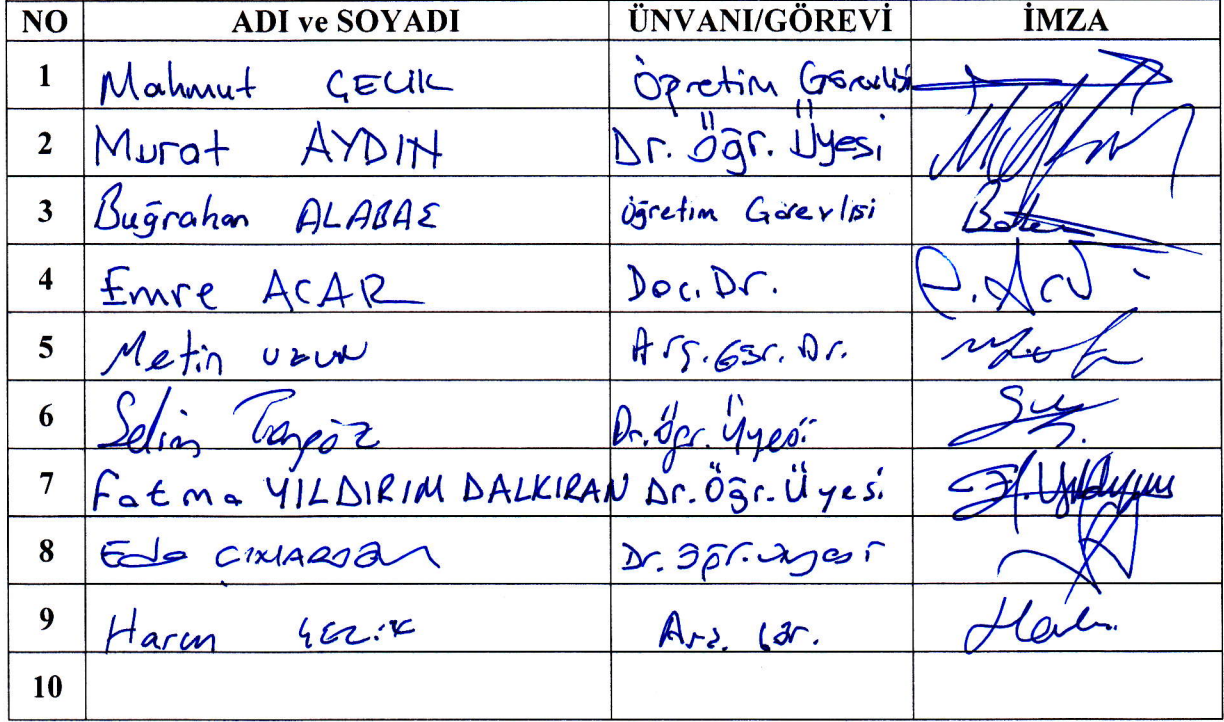 NO ADI ve SOYADI ÜNVANI/GÖREVİ İMZA
1 Mahmut ÇELİK Öğretim Görevlisi
2 Murat AYDIN Dr. Öğr. Üyesi
3 Buğrahan ALABAŞ Öğretim Görevlisi
4 Emre ACAR Doc. Dr. E. Acar
5 Metin UZUN Arş. Gör. Dr.
6 Selim Dr. Öğr. Üyesi
7 Fatma YILDIRIM DALKIRAN Dr. Öğr. Üyesi F. Yıldırım
8 Eda Dr. Öğr. Üyesi
9 Harun Arş. Gör.
10